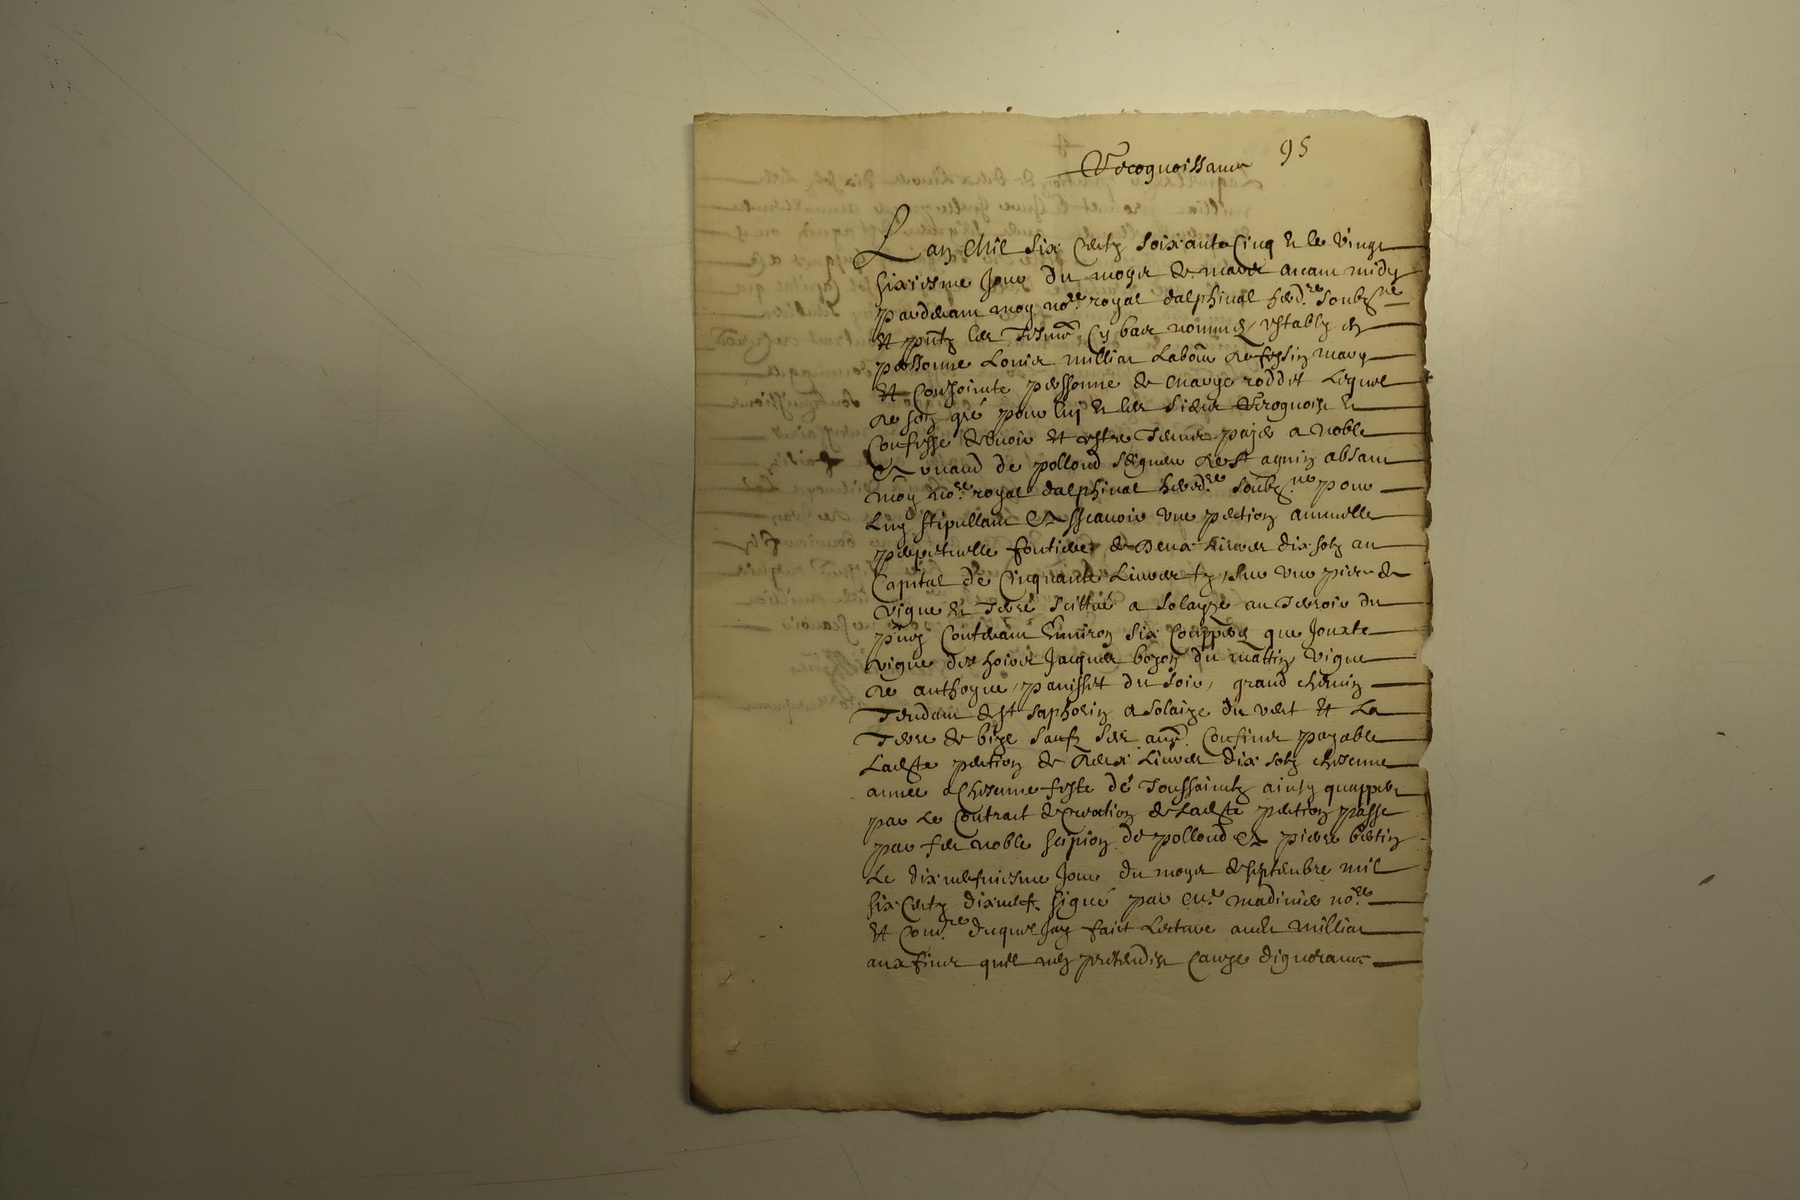 95
Recognoissance
Lan Mil six centz soixante Cinq & le vingt
sixiesme Jour du moys de mars avant midy
pardevant moy no.re royal dalphinal hered.re soubz.ne
et pntz les tesmoz Cy bas nommes, estably en
personne Louis millias Labour de mary
et Conjointe personne de roddet Lequel
de son gré pour luy & les siens Recognoist &
Confesse debvoir et estre tenu payer a noble
de polloud seigneur de st agnin absant
moy no.re royal dalphinal hered.re soubz.ne pour
Luy stipullant Et Scavoir une pention annuelle
perpetuelle fonciere de Deux Livres dix solz au
Capital de Cinquante Livres tz, sur une piece de
vigne & terre scittué a solayze au terroir du
puys Contenant Environ six Couppees que Jouxte
vigne des hoirs Jacques bozon du mattin vigne
de anthoyne, panisset du soir, grand chemin
Tendant de st saphorin a solaize du vent et La
Terre de bize sauf ses aus. Confins payable
Ladicte pention de deux Livres dix solz chesenne
annee a Chesenne feste de Toussaintz ainsy quappert
par Le Contract de Creation de Ladicte pention passe
par feu noble scipion de polloud Et pierre bertin
Le dix nefviesme Jour du moys de septembre mil
six Centz dix nef. signé par M.e madinier no.re
et Com.re duquel Jay faict Lecture audt millias
aux fins quil nen pretendist Cause dignorance